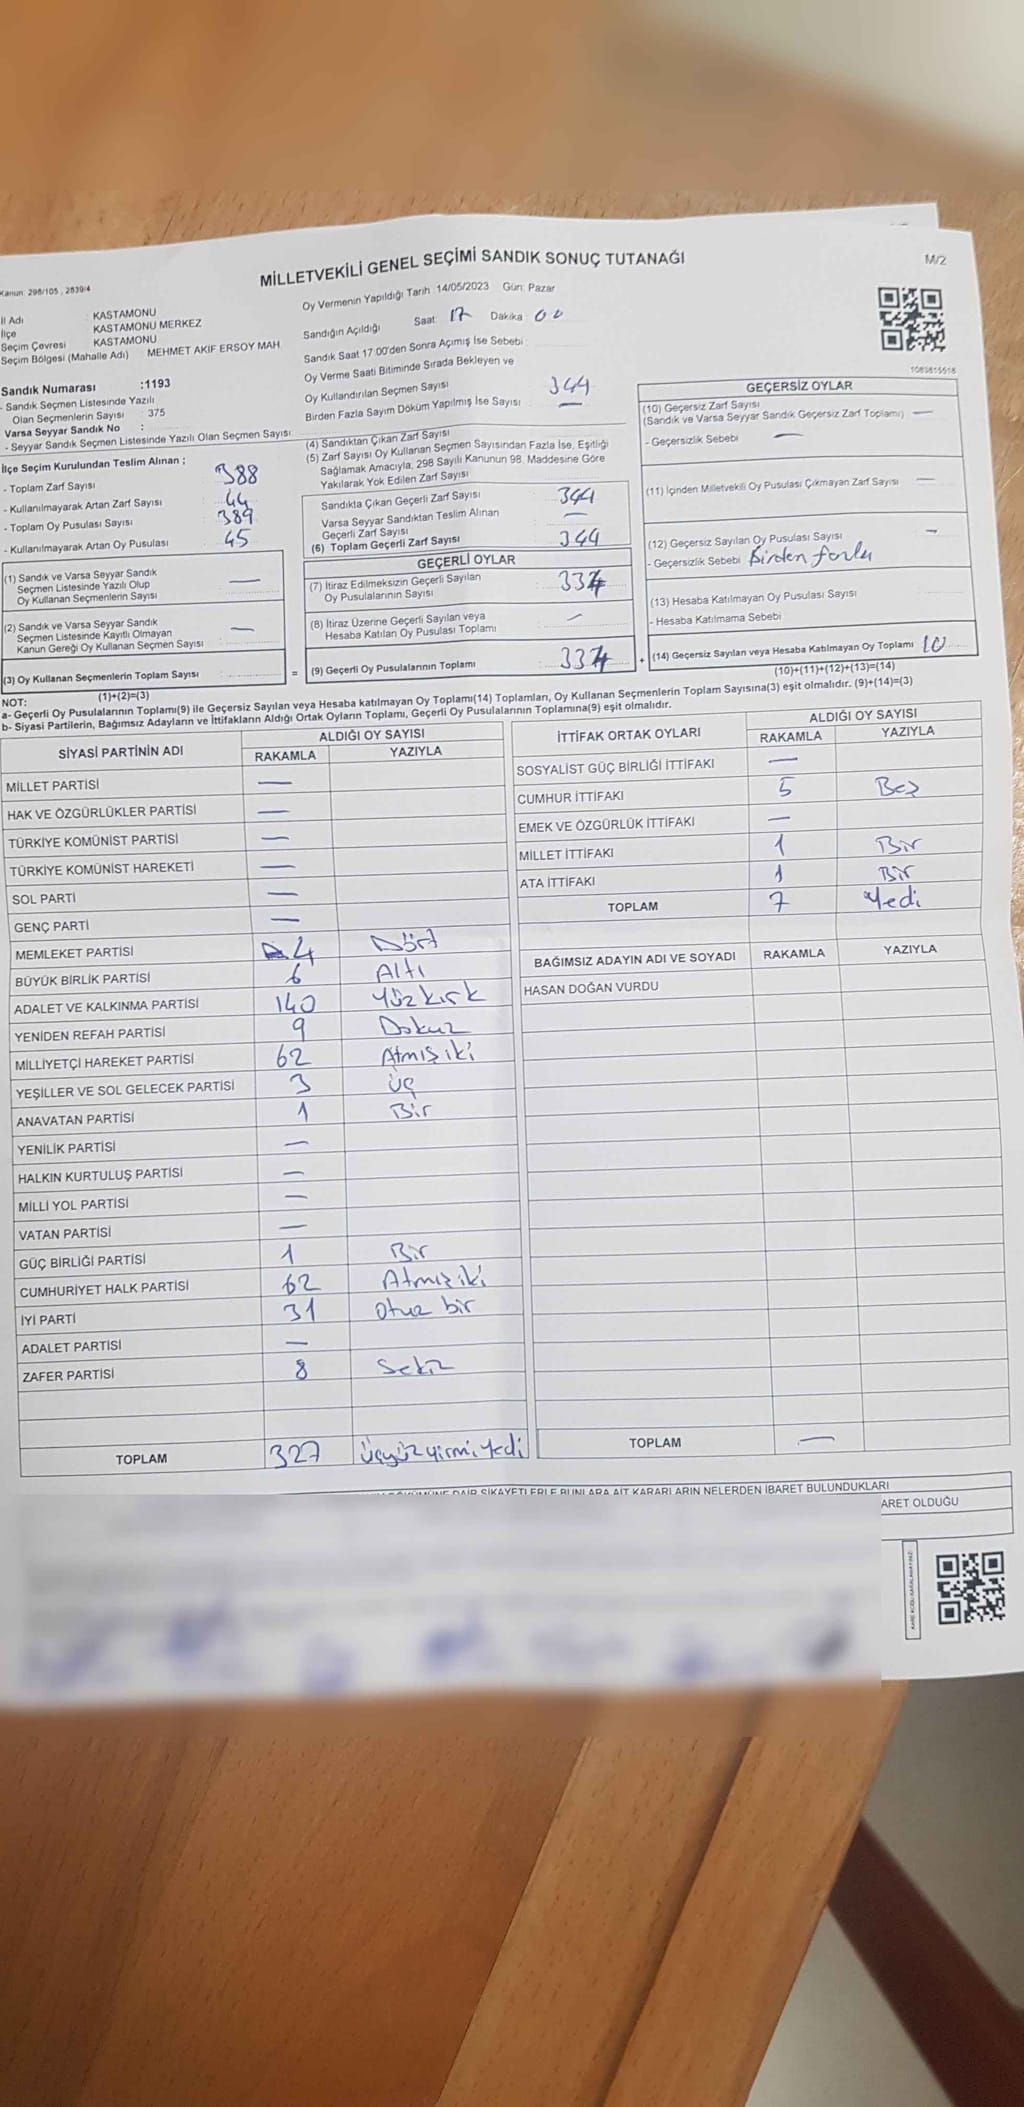 MİLLETVEKİLİ GENEL SEÇİMİ SANDIK SONUÇ TUTANAĞI
M/2
Kanun: 298/105 , 2839/4
Oy Vermenin Yapıldığı Tarih :14/05/2023 Gün: Pazar
İl Adı : KASTAMONU
İlçe : KASTAMONU MERKEZ
Seçim Çevresi : KASTAMONU
Seçim Bölgesi (Mahalle Adı) : MEHMET AKİF ERSOY MAH.
Sandık Numarası :1193
- Sandık Seçmen Listesinde Yazılı
Olan Seçmenlerin Sayısı : 375
Varsa Seyyar Sandık No :
- Seyyar Sandık Seçmen Listesinde Yazılı Olan Seçmen Sayısı:
Sandığın Açıldığı Saat: 17 Dakika : 00
Sandık Saat 17:00'den Sonra Açılmış İse Sebebi
Oy Verme Saati Bitiminde Sırada Bekleyen ve
Oy Kullandırılan Seçmen Sayısı 344
Birden Fazla Sayım Döküm Yapılmış İse Sayısı : —
İlçe Seçim Kurulundan Teslim Alınan ;
- Toplam Zarf Sayısı 388
- Kullanılmayarak Artan Zarf Sayısı : 44
- Toplam Oy Pusulası Sayısı 389
- Kullanılmayarak Artan Oy Pusulası : 45
(1) Sandık ve Varsa Seyyar Sandık
Seçmen Listesinde Yazılı Olup
Oy Kullanan Seçmenlerin Sayısı —
(2) Sandık ve Varsa Seyyar Sandık
Seçmen Listesinde Kayıtlı Olmayan
Kanun Gereği Oy Kullanan Seçmen Sayısı : —
(3) Oy Kullanan Seçmenlerin Toplam Sayısı :
(1)+(2)=(3)
(4) Sandıktan Çıkan Zarf Sayısı
(5) Zarf Sayısı Oy Kullanan Seçmen Sayısından Fazla İse, Eşitliği
Sağlamak Amacıyla, 298 Sayılı Kanunun 98. Maddesine Göre
Yakılarak Yok Edilen Zarf Sayısı
Sandıkta Çıkan Geçerli Zarf Sayısı 344
Varsa Seyyar Sandıktan Teslim Alınan
Geçerli Zarf Sayısı —
(6) Toplam Geçerli Zarf Sayısı : 344
GEÇERLİ OYLAR
(7) İtiraz Edilmeksizin Geçerli Sayılan
Oy Pusulalarının Sayısı 334
(8) İtiraz Üzerine Geçerli Sayılan veya
Hesaba Katılan Oy Pusulası Toplamı —
= (9) Geçerli Oy Pusulalarının Toplamı : 334 +
1083815518
GEÇERSİZ OYLAR
(10) Geçersiz Zarf Sayısı
(Sandık ve Varsa Seyyar Sandık Geçersiz Zarf Toplamı) —
- Geçersizlik Sebebi —
(11) İçinden Milletvekili Oy Pusulası Çıkmayan Zarf Sayısı —
(12) Geçersiz Sayılan Oy Pusulası Sayısı : —
- Geçersizlik Sebebi Birden fazla
(13) Hesaba Katılmayan Oy Pusulası Sayısı
- Hesaba Katılmama Sebebi
(14) Geçersiz Sayılan veya Hesaba Katılmayan Oy Toplamı 10
(10)+(11)+(12)+(13)=(14)
NOT:
a- Geçerli Oy Pusulalarının Toplamı(9) ile Geçersiz Sayılan veya Hesaba katılmayan Oy Toplamı(14) Toplamları, Oy Kullanan Seçmenlerin Toplam Sayısına(3) eşit olmalıdır. (9)+(14)=(3)
b- Siyasi Partilerin, Bağımsız Adayların ve İttifakların Aldığı Ortak Oyların Toplamı, Geçerli Oy Pusulalarının Toplamına(9) eşit olmalıdır.
SİYASİ PARTİNİN ADI ALDIĞI OY SAYISI
RAKAMLA YAZIYLA
MİLLET PARTİSİ —
HAK VE ÖZGÜRLÜKLER PARTİSİ —
TÜRKİYE KOMÜNİST PARTİSİ —
TÜRKİYE KOMÜNİST HAREKETİ —
SOL PARTİ —
GENÇ PARTİ —
MEMLEKET PARTİSİ 4 Dört
BÜYÜK BİRLİK PARTİSİ 6 Altı
ADALET VE KALKINMA PARTİSİ 140 Yüz kırk
YENİDEN REFAH PARTİSİ 9 Dokuz
MİLLİYETÇİ HAREKET PARTİSİ 62 Atmış iki
YEŞİLLER VE SOL GELECEK PARTİSİ 3 Üç
ANAVATAN PARTİSİ 1 Bir
YENİLİK PARTİSİ —
HALKIN KURTULUŞ PARTİSİ —
MİLLİ YOL PARTİSİ —
VATAN PARTİSİ —
GÜÇ BİRLİĞİ PARTİSİ 1 Bir
CUMHURİYET HALK PARTİSİ 62 Atmış iki
İYİ PARTİ 31 Otuz bir
ADALET PARTİSİ —
ZAFER PARTİSİ 8 Sekiz
TOPLAM 327 Üçyüz yirmi yedi
İTTİFAK ORTAK OYLARI ALDIĞI OY SAYISI
RAKAMLA YAZIYLA
SOSYALİST GÜÇ BİRLİĞİ İTTİFAKI —
CUMHUR İTTİFAKI 5 Beş
EMEK VE ÖZGÜRLÜK İTTİFAKI —
MİLLET İTTİFAKI 1 Bir
ATA İTTİFAKI 1 Bir
TOPLAM 7 Yedi
BAĞIMSIZ ADAYIN ADI VE SOYADI RAKAMLA YAZIYLA
HASAN DOĞAN VURDU
TOPLAM —
DAİR ŞİKAYETLERLE BUNLARA AİT KARARLARIN NELERDEN İBARET BULUNDUKLARI
ARET OLDUĞU